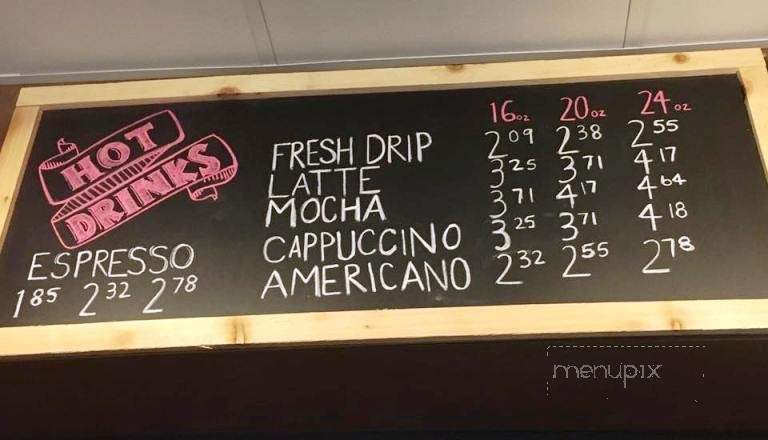 HOT
DRINKS
ESPRESSO
1.85 2.32 2.78
16oz 20oz 24oz
FRESH DRIP 2.09 2.38 2.55
LATTE 3.25 3.71 4.17
MOCHA 3.71 4.17 4.64
CAPPUCCINO 3.25 3.71 4.18
AMERICANO 2.32 2.55 2.78
menupix